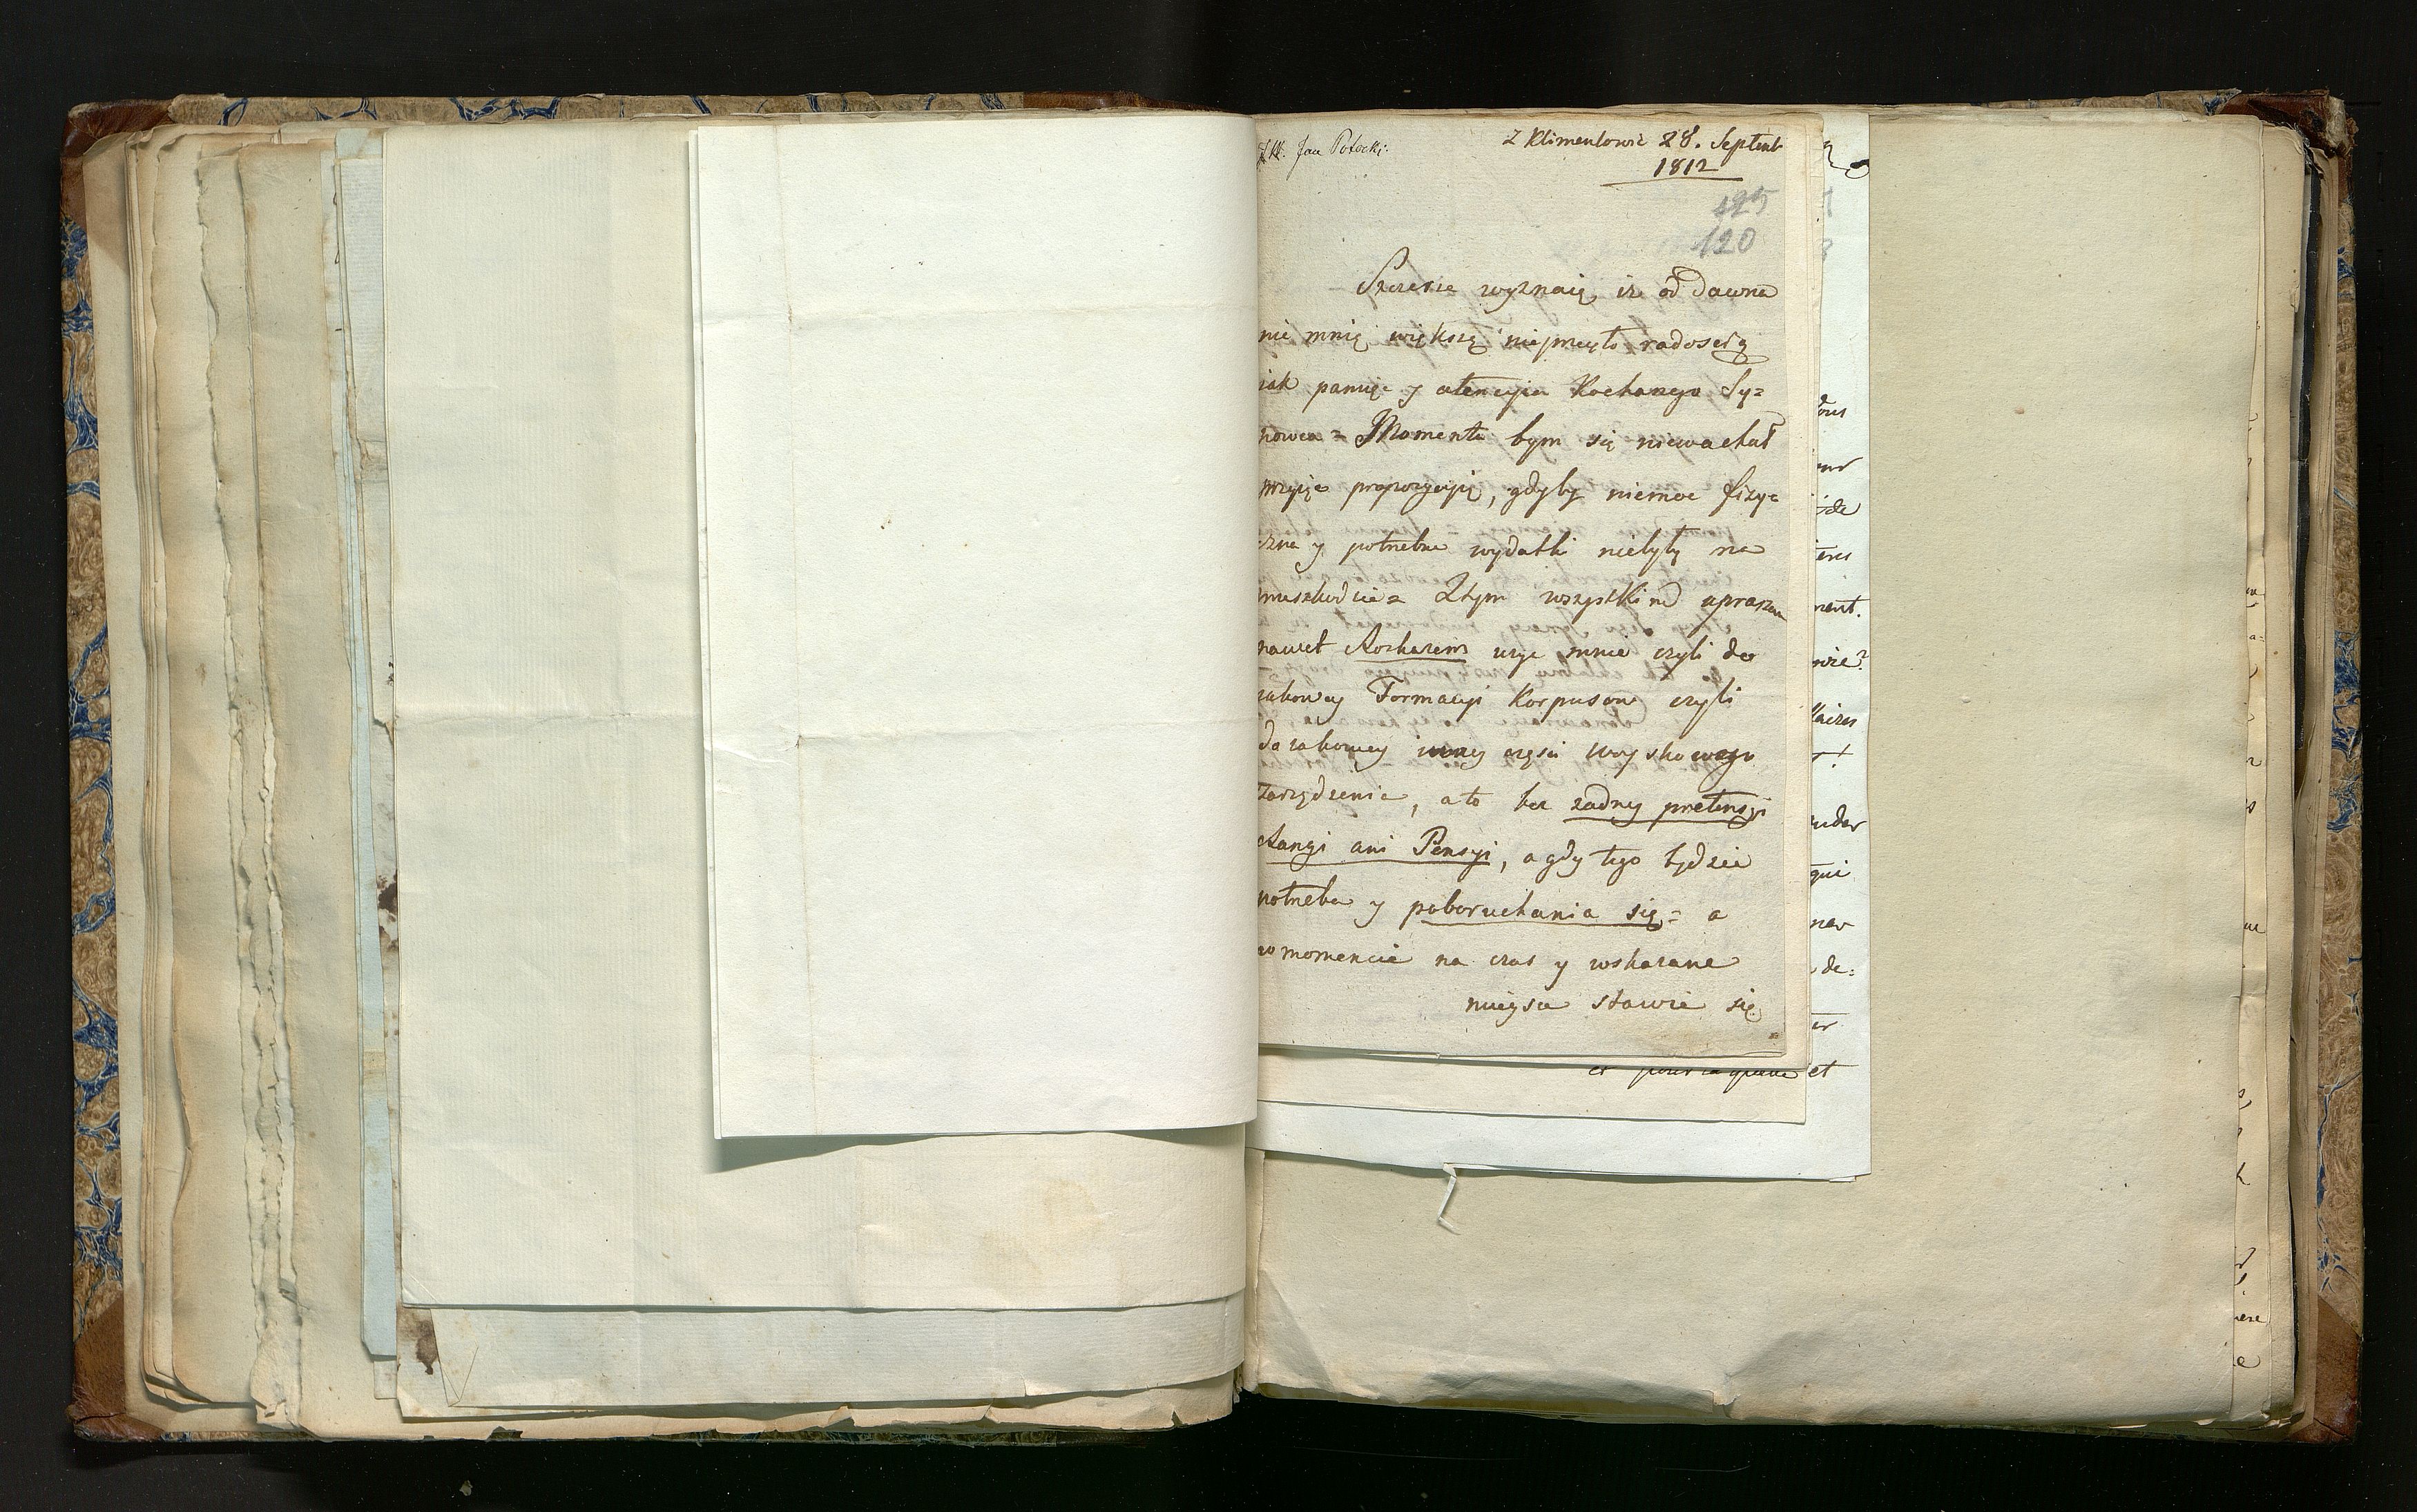 J.W. Jan Potocki.
Z Klimentowic 28. Septemb
1812
125
120
Szczerze wyznaię, iż od dawna
nic mnię większą nieprzeięło radością
iak pamięc y atencyia Kochanego Sy=
nowca = Momentu bym się niewachał
przyiąc propozycyią, gdyby niemoc fizy=
czna y potrzebne wydatki niebyły na
przeszkodzie = Ztym wszystkim upraszam
nawet Rozkazem użyc mnie czyli do
iakowey Formacyi Korpusow czyli
do iakowey inney części woyskowego
Zarządzenia, a to bez żadney pretensyi
Rangi ani Pensyi, a gdy tego będzie
potrzeba y poboruchania się = a
w momencie na czas y wskazane
mieysce stawie się
er pour la guerre et
ous
ide
ment.
oire?
qui
de: